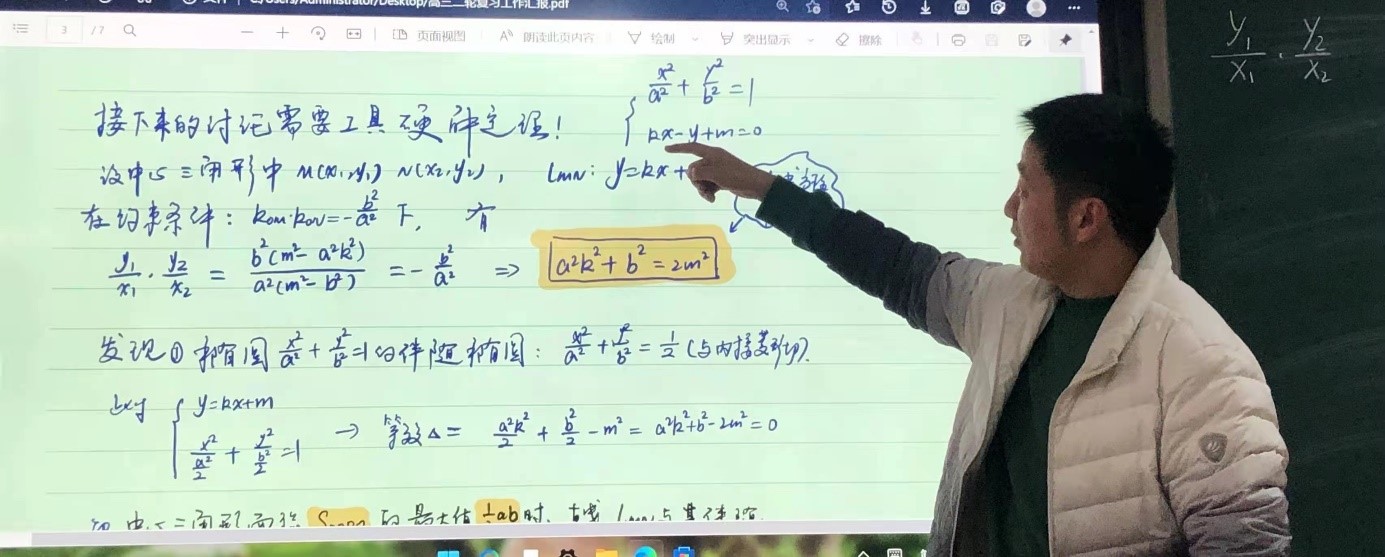 C:/Users/Administrator/Desktop/高三二轮复习工作汇报.pdf
3 / 7 页面视图 朗读此页内容 绘制 突出显示 擦除
y₁/x₁ · y₂/x₂
接下来的讨论需要工具硬解定理!
{ x²/a² + y²/b² = 1
kx-y+m=0
设中心三角形中 M(x₁,y₁) N(x₂,y₂), lMN: y=kx+
在约束条件: kOM·kON=-b²/a² 下, 有
y₁/x₁ · y₂/x₂ = b²(m²-a²k²)/a²(m²-b²) = -b²/a² => a²k²+b²=2m²
发现① 椭圆 x²/a² + y²/b² =1 的伴随椭圆: x²/a² + y²/b² = 1/2 (与内接菱形切).
{ y=kx+m
x²/(a²/2) + y²/(b²/2) =1
→ 等效Δ= a²k²/2 + b²/2 - m² = a²k²+b²-2m² = 0
中心三角形面积 的最大值 ½ab 时, 直线 lMN 与其伴随